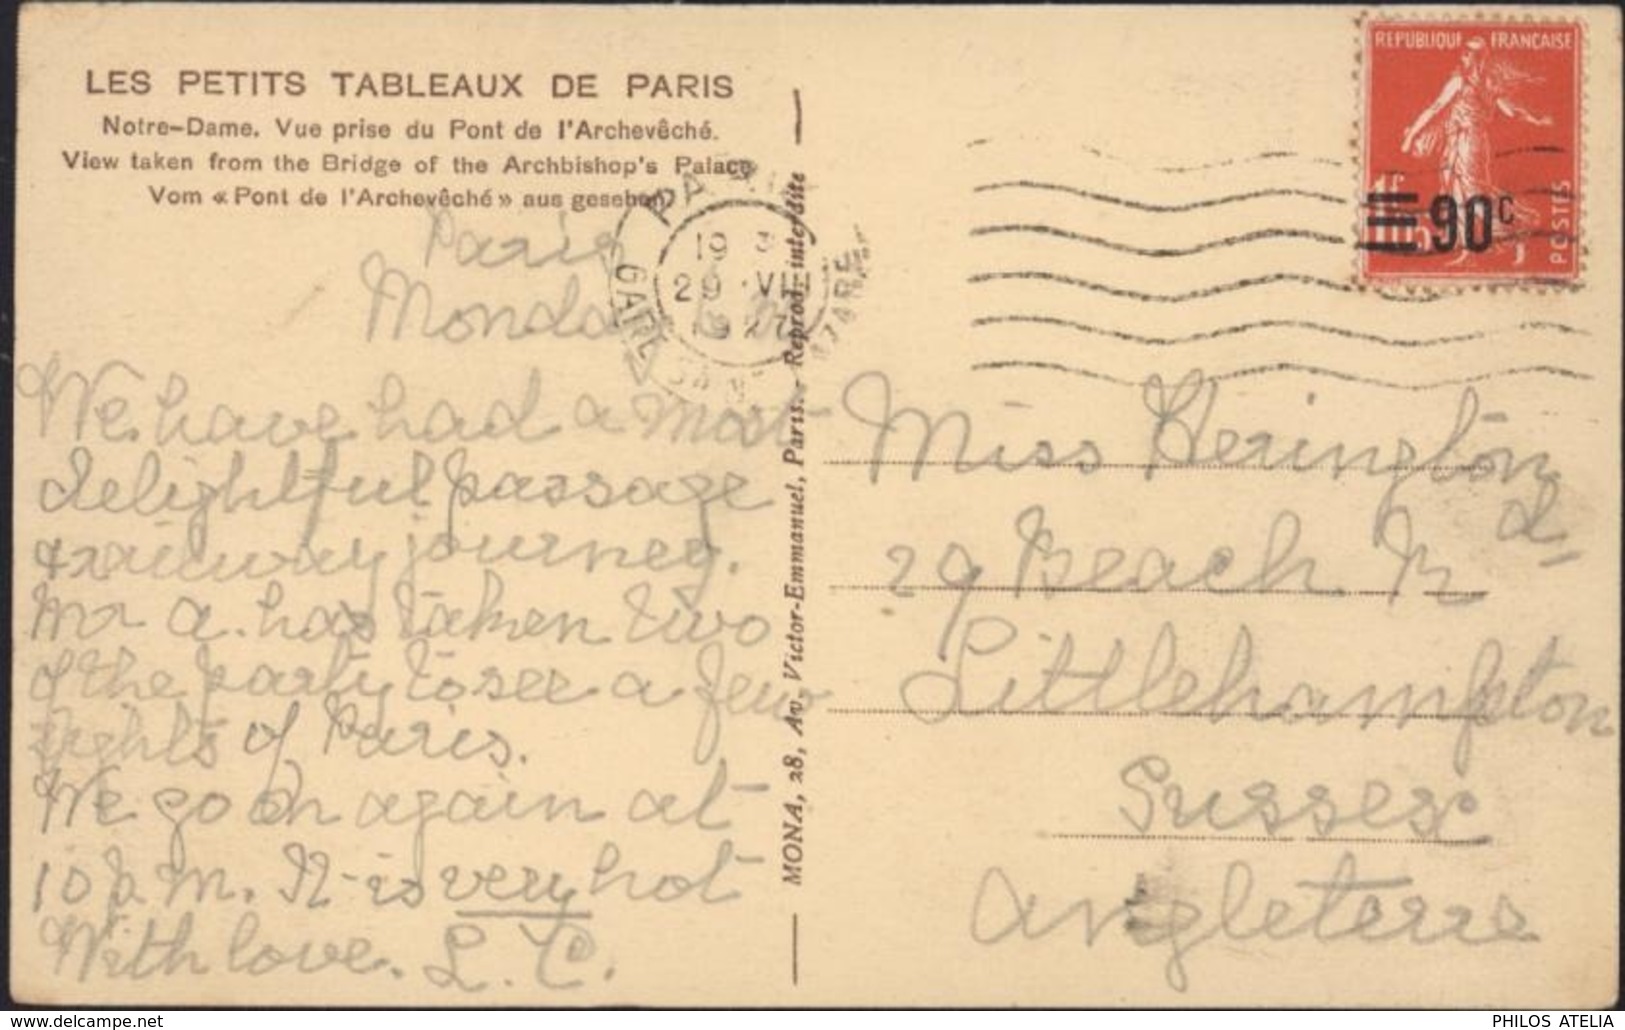 LES PETITS TABLEAUX DE PARIS
Notre-Dame. Vue prise du Pont de l'Archevêché.
View taken from the Bridge of the Archbishop's Palace
Vom « Pont de l'Archevêché » aus gesehen.
Paris
Monday
We have had a most
delightful passage
& railway journey.
Mr A. has taken two
of the party to see a few
sights of Paris.
We go on again at
10 p.m. It is very hot
With love. L. C.
MONA, 28, Av. Victor-Emmanuel, Paris. - Reprod. interdite
PARIS
GARE
1927
REPUBLIQUE FRANCAISE
90c
POSTES
Miss Herington
29 Beach Rd
Littlehampton
Sussex
Angleterre
www.delcampe.net
PHILOS ATELIA